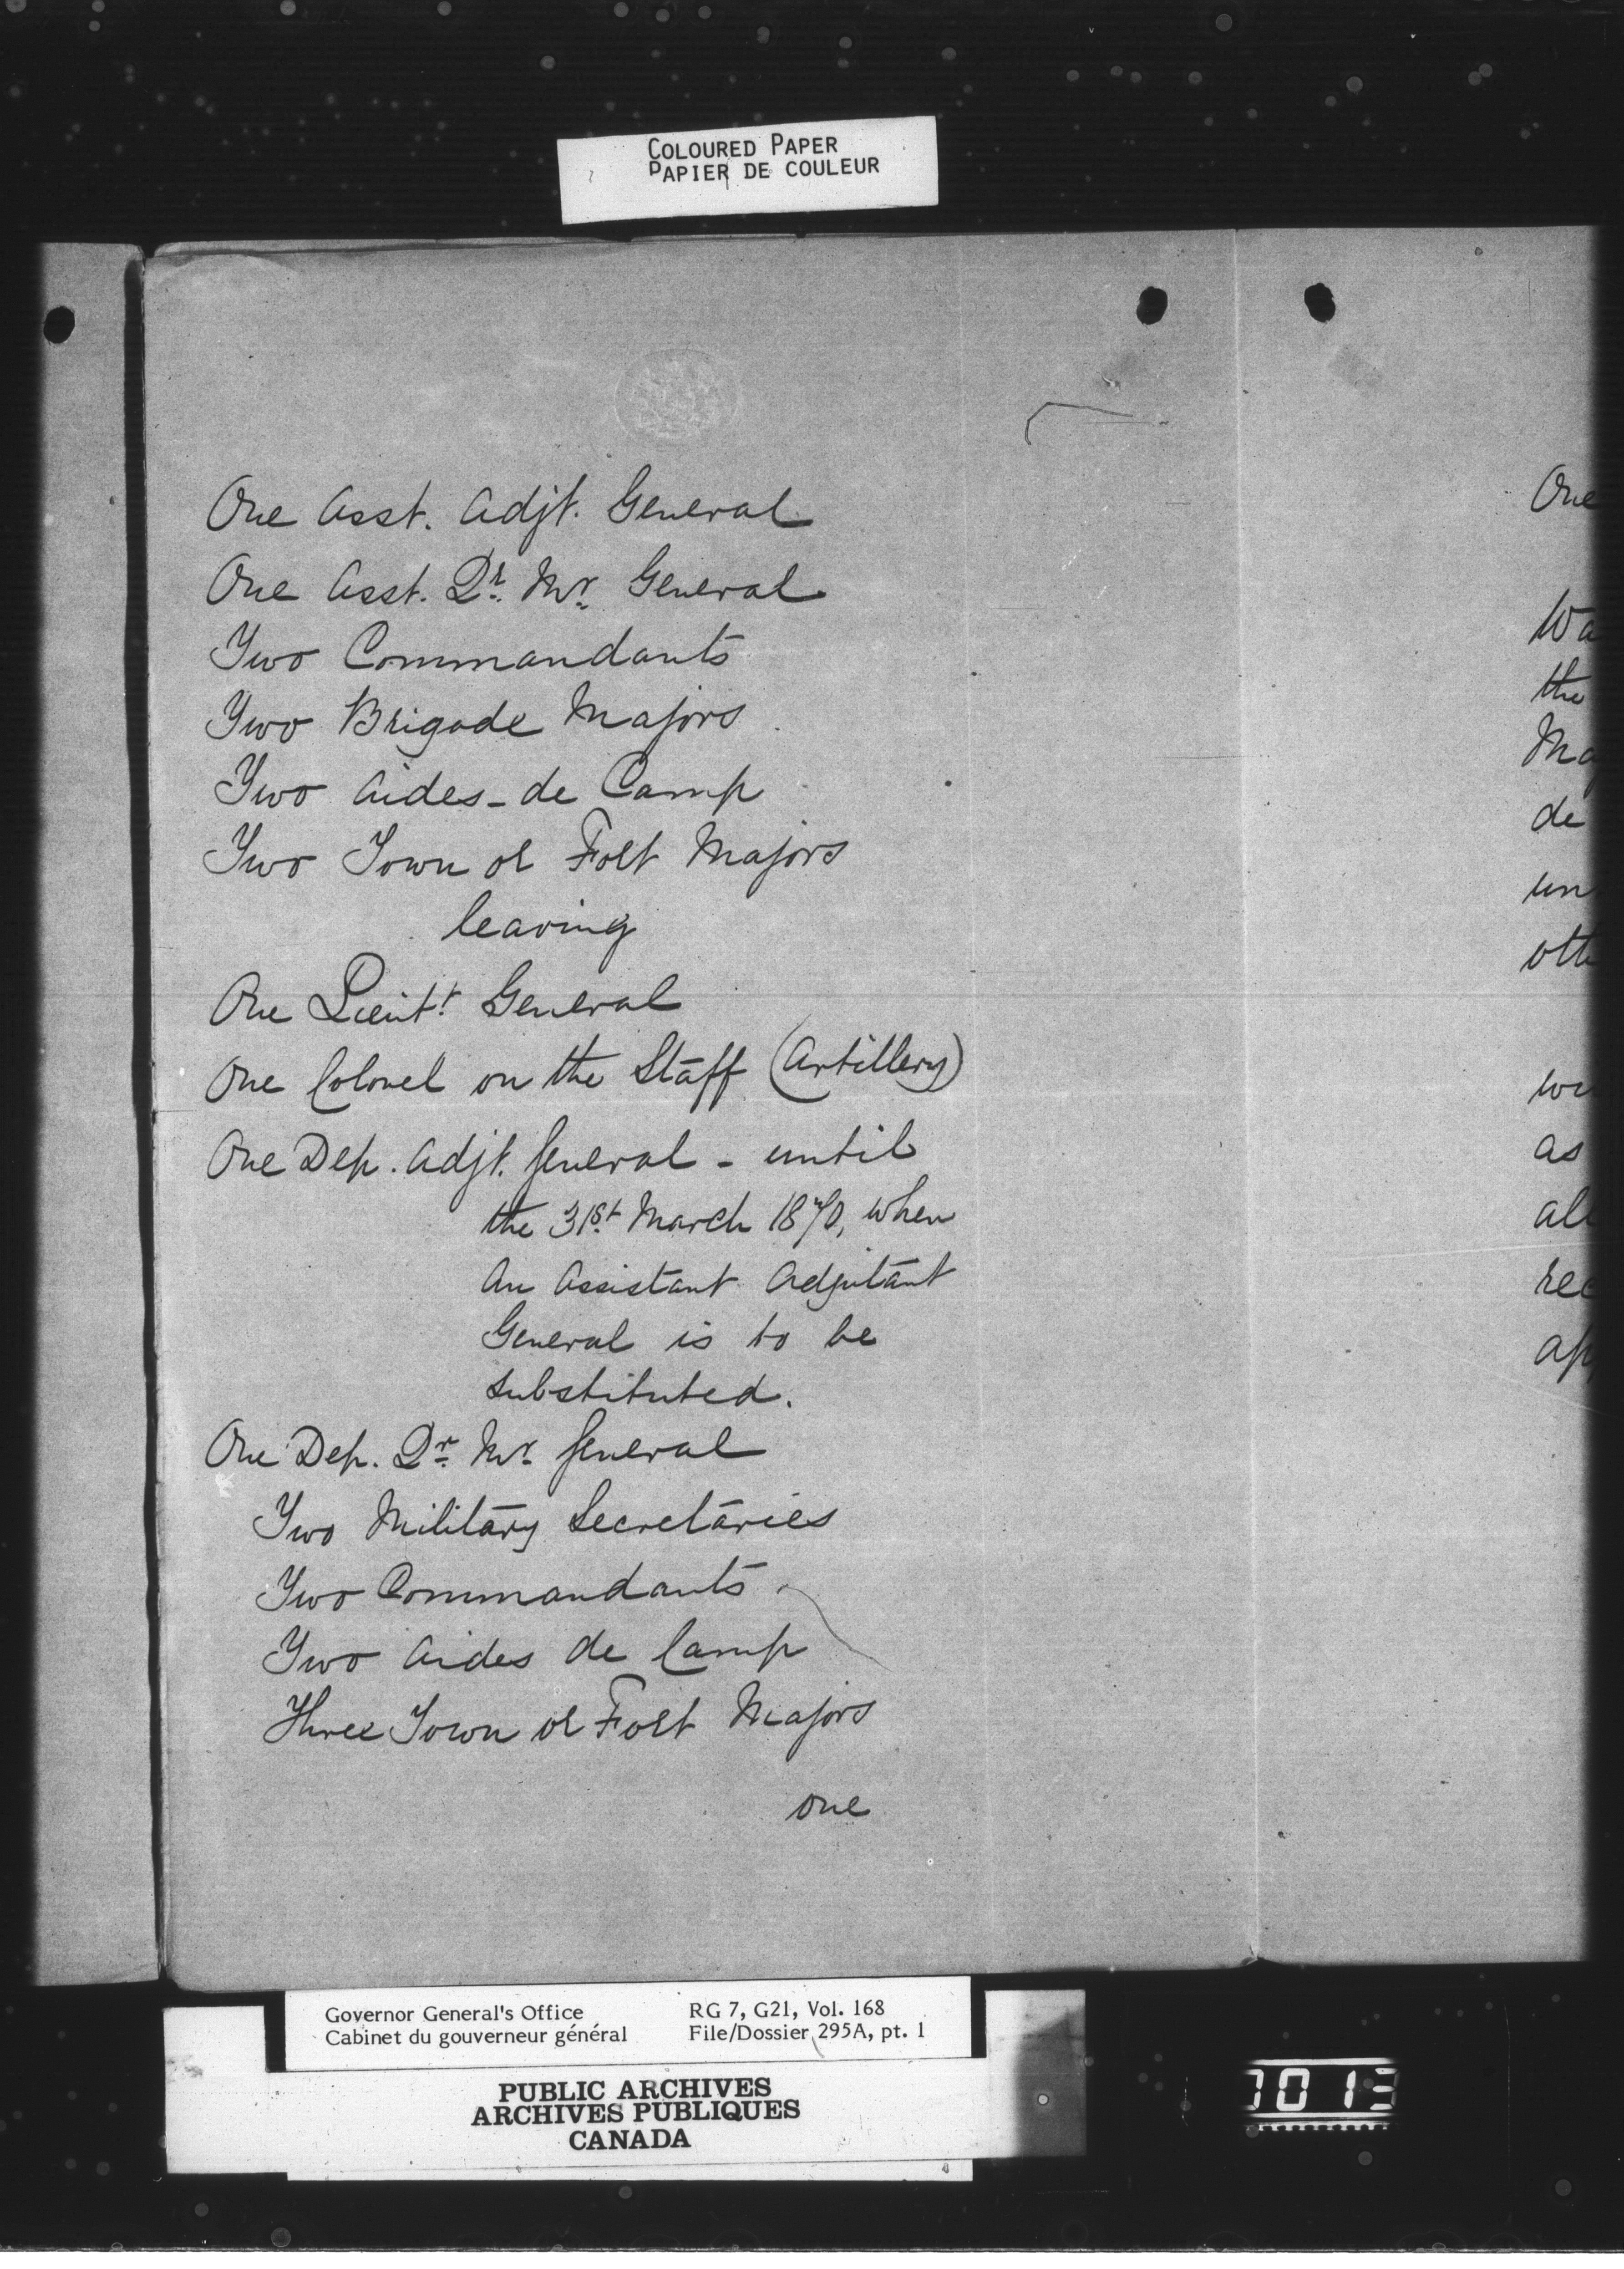 COLOURED PAPER
PAPIER DE COULEUR
One Asst. Adjt. General
One Asst. Qr. Mr. General
Two Commandants
Two Brigade Majors
Two Aides-de Camp
Two Town or Fort Majors
leaving
One Lieutt. General
One Colonel on the Staff (Artillery)
One Dep. Adjt. General - until
the 31st March 1870, when
an Assistant Adjutant
General is to be
substituted.
One Dep. Qr. Mr. General
Two Military Secretaries
Two Commandants
Two Aides de Camp
Three Town or Fort Majors
one
One
Wa
the
Ma
de
un
oth
we
as
all
rec
ap
Governor General's Office RG 7, G21, Vol. 168
Cabinet du gouverneur général File/Dossier 295A, pt. 1
PUBLIC ARCHIVES
ARCHIVES PUBLIQUES
CANADA